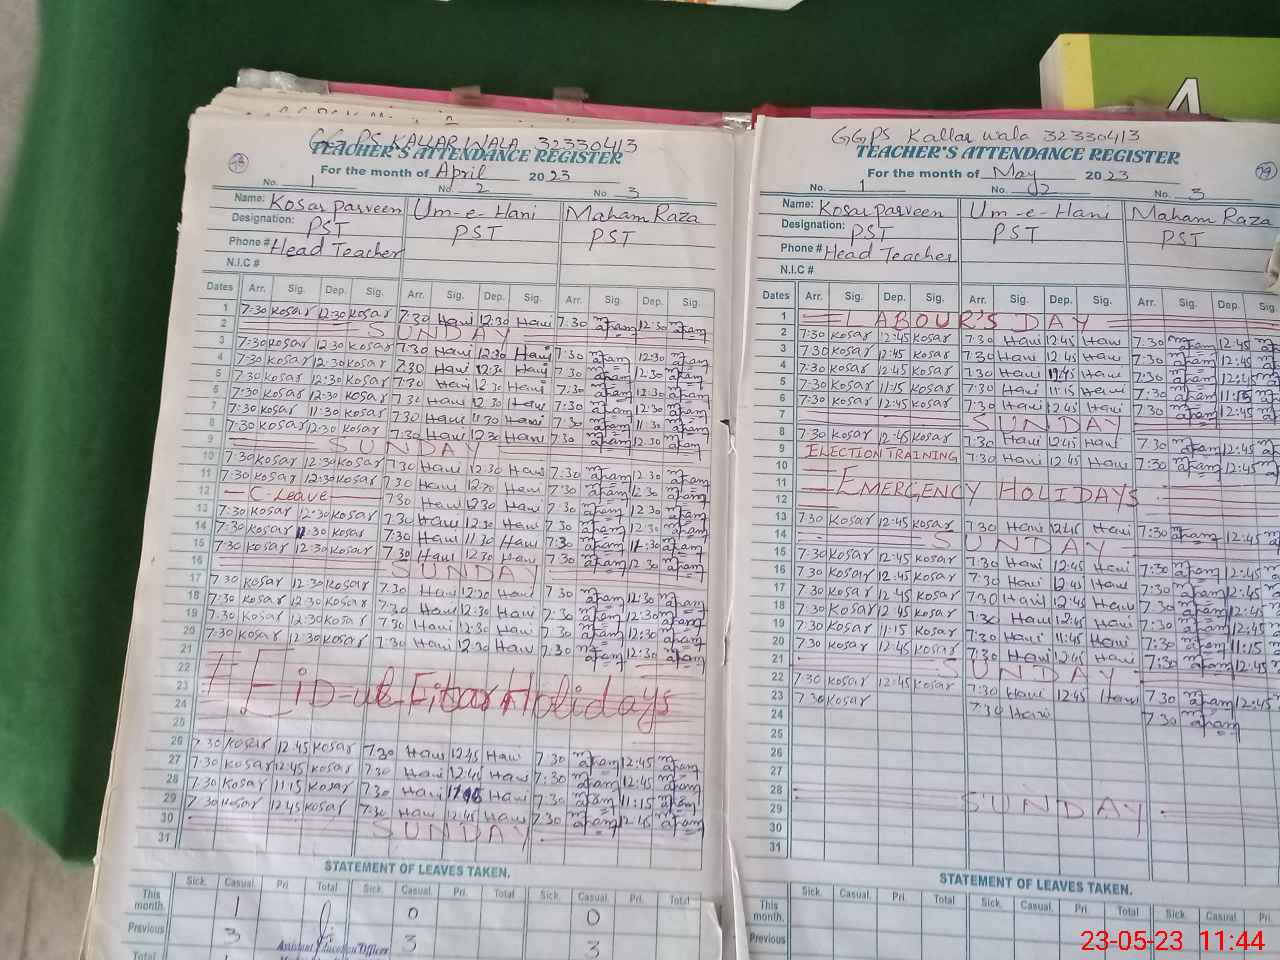 GGPS KALLAR WALA 32330413
TEACHER'S ATTENDANCE REGISTER
For the month of April 2023
No. 1 No. 2 No. 3
Name: Kosar Parveen Um-e-Hani Maham Raza
Designation: PST PST PST
Phone # Head Teacher
N.I.C #
Dates Arr. Sig. Dep. Sig. Arr. Sig. Dep. Sig. Arr. Sig. Dep. Sig.
1 7:30 Kosar 12:30 Kosar 7:30 Hani 12:30 Hani 7:30 Maham 12:30 Maham
2 SUNDAY
3 7:30 Kosar 12:30 Kosar 7:30 Hani 12:30 Hani 7:30 Maham 12:30 Maham
4 7:30 Kosar 12:30 Kosar 7:30 Hani 12:30 Hani 7:30 Maham 12:30 Maham
5 7:30 Kosar 12:30 Kosar 7:30 Hani 12:30 Hani 7:30 Maham 12:30 Maham
6 7:30 Kosar 12:30 Kosar 7:30 Hani 12:30 Hani 7:30 Maham 12:30 Maham
7 7:30 Kosar 11:30 Kosar 7:30 Hani 11:30 Hani 7:30 Maham 11:30 Maham
8 7:30 Kosar 12:30 Kosar 7:30 Hani 12:30 Hani 7:30 Maham 12:30 Maham
9 SUNDAY
10 7:30 Kosar 12:30 Kosar 7:30 Hani 12:30 Hani 7:30 Maham 12:30 Maham
11 7:30 Kosar 12:30 Kosar 7:30 Hani 12:30 Hani 7:30 Maham 12:30 Maham
12 C.Leave 7:30 Hani 12:30 Hani 7:30 Maham 12:30 Maham
13 7:30 Kosar 12:30 Kosar 7:30 Hani 12:30 Hani 7:30 Maham 12:30 Maham
14 7:30 Kosar 11:30 Kosar 7:30 Hani 11:30 Hani 7:30 Maham 11:30 Maham
15 7:30 Kosar 12:30 Kosar 7:30 Hani 12:30 Hani 7:30 Maham 12:30 Maham
16 SUNDAY
17 7:30 Kosar 12:30 Kosar 7:30 Hani 12:30 Hani 7:30 Maham 12:30 Maham
18 7:30 Kosar 12:30 Kosar 7:30 Hani 12:30 Hani 7:30 Maham 12:30 Maham
19 7:30 Kosar 12:30 Kosar 7:30 Hani 12:30 Hani 7:30 Maham 12:30 Maham
20 7:30 Kosar 12:30 Kosar 7:30 Hani 12:30 Hani 7:30 Maham 12:30 Maham
21
22
23 Eid-ul-Fitar Holidays
24
25
26 7:30 Kosar 12:45 Kosar 7:30 Hani 12:45 Hani 7:30 Maham 12:45 Maham
27 7:30 Kosar 12:45 Kosar 7:30 Hani 12:45 Hani 7:30 Maham 12:45 Maham
28 7:30 Kosar 11:15 Kosar 7:30 Hani 11:15 Hani 7:30 Maham 11:15 Maham
29 7:30 Kosar 12:45 Kosar 7:30 Hani 12:45 Hani 7:30 Maham 12:45 Maham
30 SUNDAY
31
STATEMENT OF LEAVES TAKEN.
Sick. Casual. Pri. Total Sick. Casual. Pri. Total Sick. Casual. Pri. Total
This month. 1 0 0
Previous 3 3 3
Assistant Education Officer
Total
GGPS Kallar wala 32330413
TEACHER'S ATTENDANCE REGISTER
For the month of May 2023
No. 1 No. 2 3
Name: Kosar Parveen Um-e-Hani Maham Raza
Designation: PST PST PST
Phone # Head Teacher
N.I.C #
Dates Arr. Sig. Dep. Sig. Arr. Sig. Dep. Sig. Arr. Sig. Dep.
1 LABOUR'S DAY
2 7:30 Kosar 12:45 Kosar 7:30 Hani 12:45 Hani 7:30 Maham 12:45
3 7:30 Kosar 12:45 Kosar 7:30 Hani 12:45 Hani 7:30 Maham 12:45
4 7:30 Kosar 12:45 Kosar 7:30 Hani 12:45 Hani 7:30 Maham 12:45
5 7:30 Kosar 11:15 Kosar 7:30 Hani 11:15 Hani 7:30 Maham 11:15
6 7:30 Kosar 12:45 Kosar 7:30 Hani 12:45 Hani 7:30 Maham 12:45
7 SUNDAY
8 7:30 Kosar 12:45 Kosar 7:30 Hani 12:45 Hani 7:30 Maham 12:45
9 ELECTION TRAINING 7:30 Hani 12:45 Hani 7:30 Maham 12:45
10
11 EMERGENCY HOLIDAYS
12
13 7:30 Kosar 12:45 Kosar 7:30 Hani 12:45 Hani 7:30 Maham 12:45
14 SUNDAY
15 7:30 Kosar 12:45 Kosar 7:30 Hani 12:45 Hani 7:30 Maham 12:45
16 7:30 Kosar 12:45 Kosar 7:30 Hani 12:45 Hani 7:30 Maham 12:45
17 7:30 Kosar 12:45 Kosar 7:30 Hani 12:45 Hani 7:30 Maham 12:45
18 7:30 Kosar 12:45 Kosar 7:30 Hani 12:45 Hani 7:30 Maham 12:45
19 7:30 Kosar 11:15 Kosar 7:30 Hani 11:45 Hani 7:30 Maham 11:15
20 7:30 Kosar 12:45 Kosar 7:30 Hani 12:45 Hani 7:30 Maham 12:45
21 SUNDAY
22 7:30 Kosar 12:45 Kosar 7:30 Hani 12:45 Hani 7:30 Maham 12:45
23 7:30 Kosar 7:30 Hani 7:30 Maham
24
25
26
27
28 SUNDAY
29
30
31
STATEMENT OF LEAVES TAKEN.
Sick. Casual. Pri. Total Sick. Casual. Pri. Total Sick. Casual. Pri.
This month.
Previous
4
23-05-23 11:44